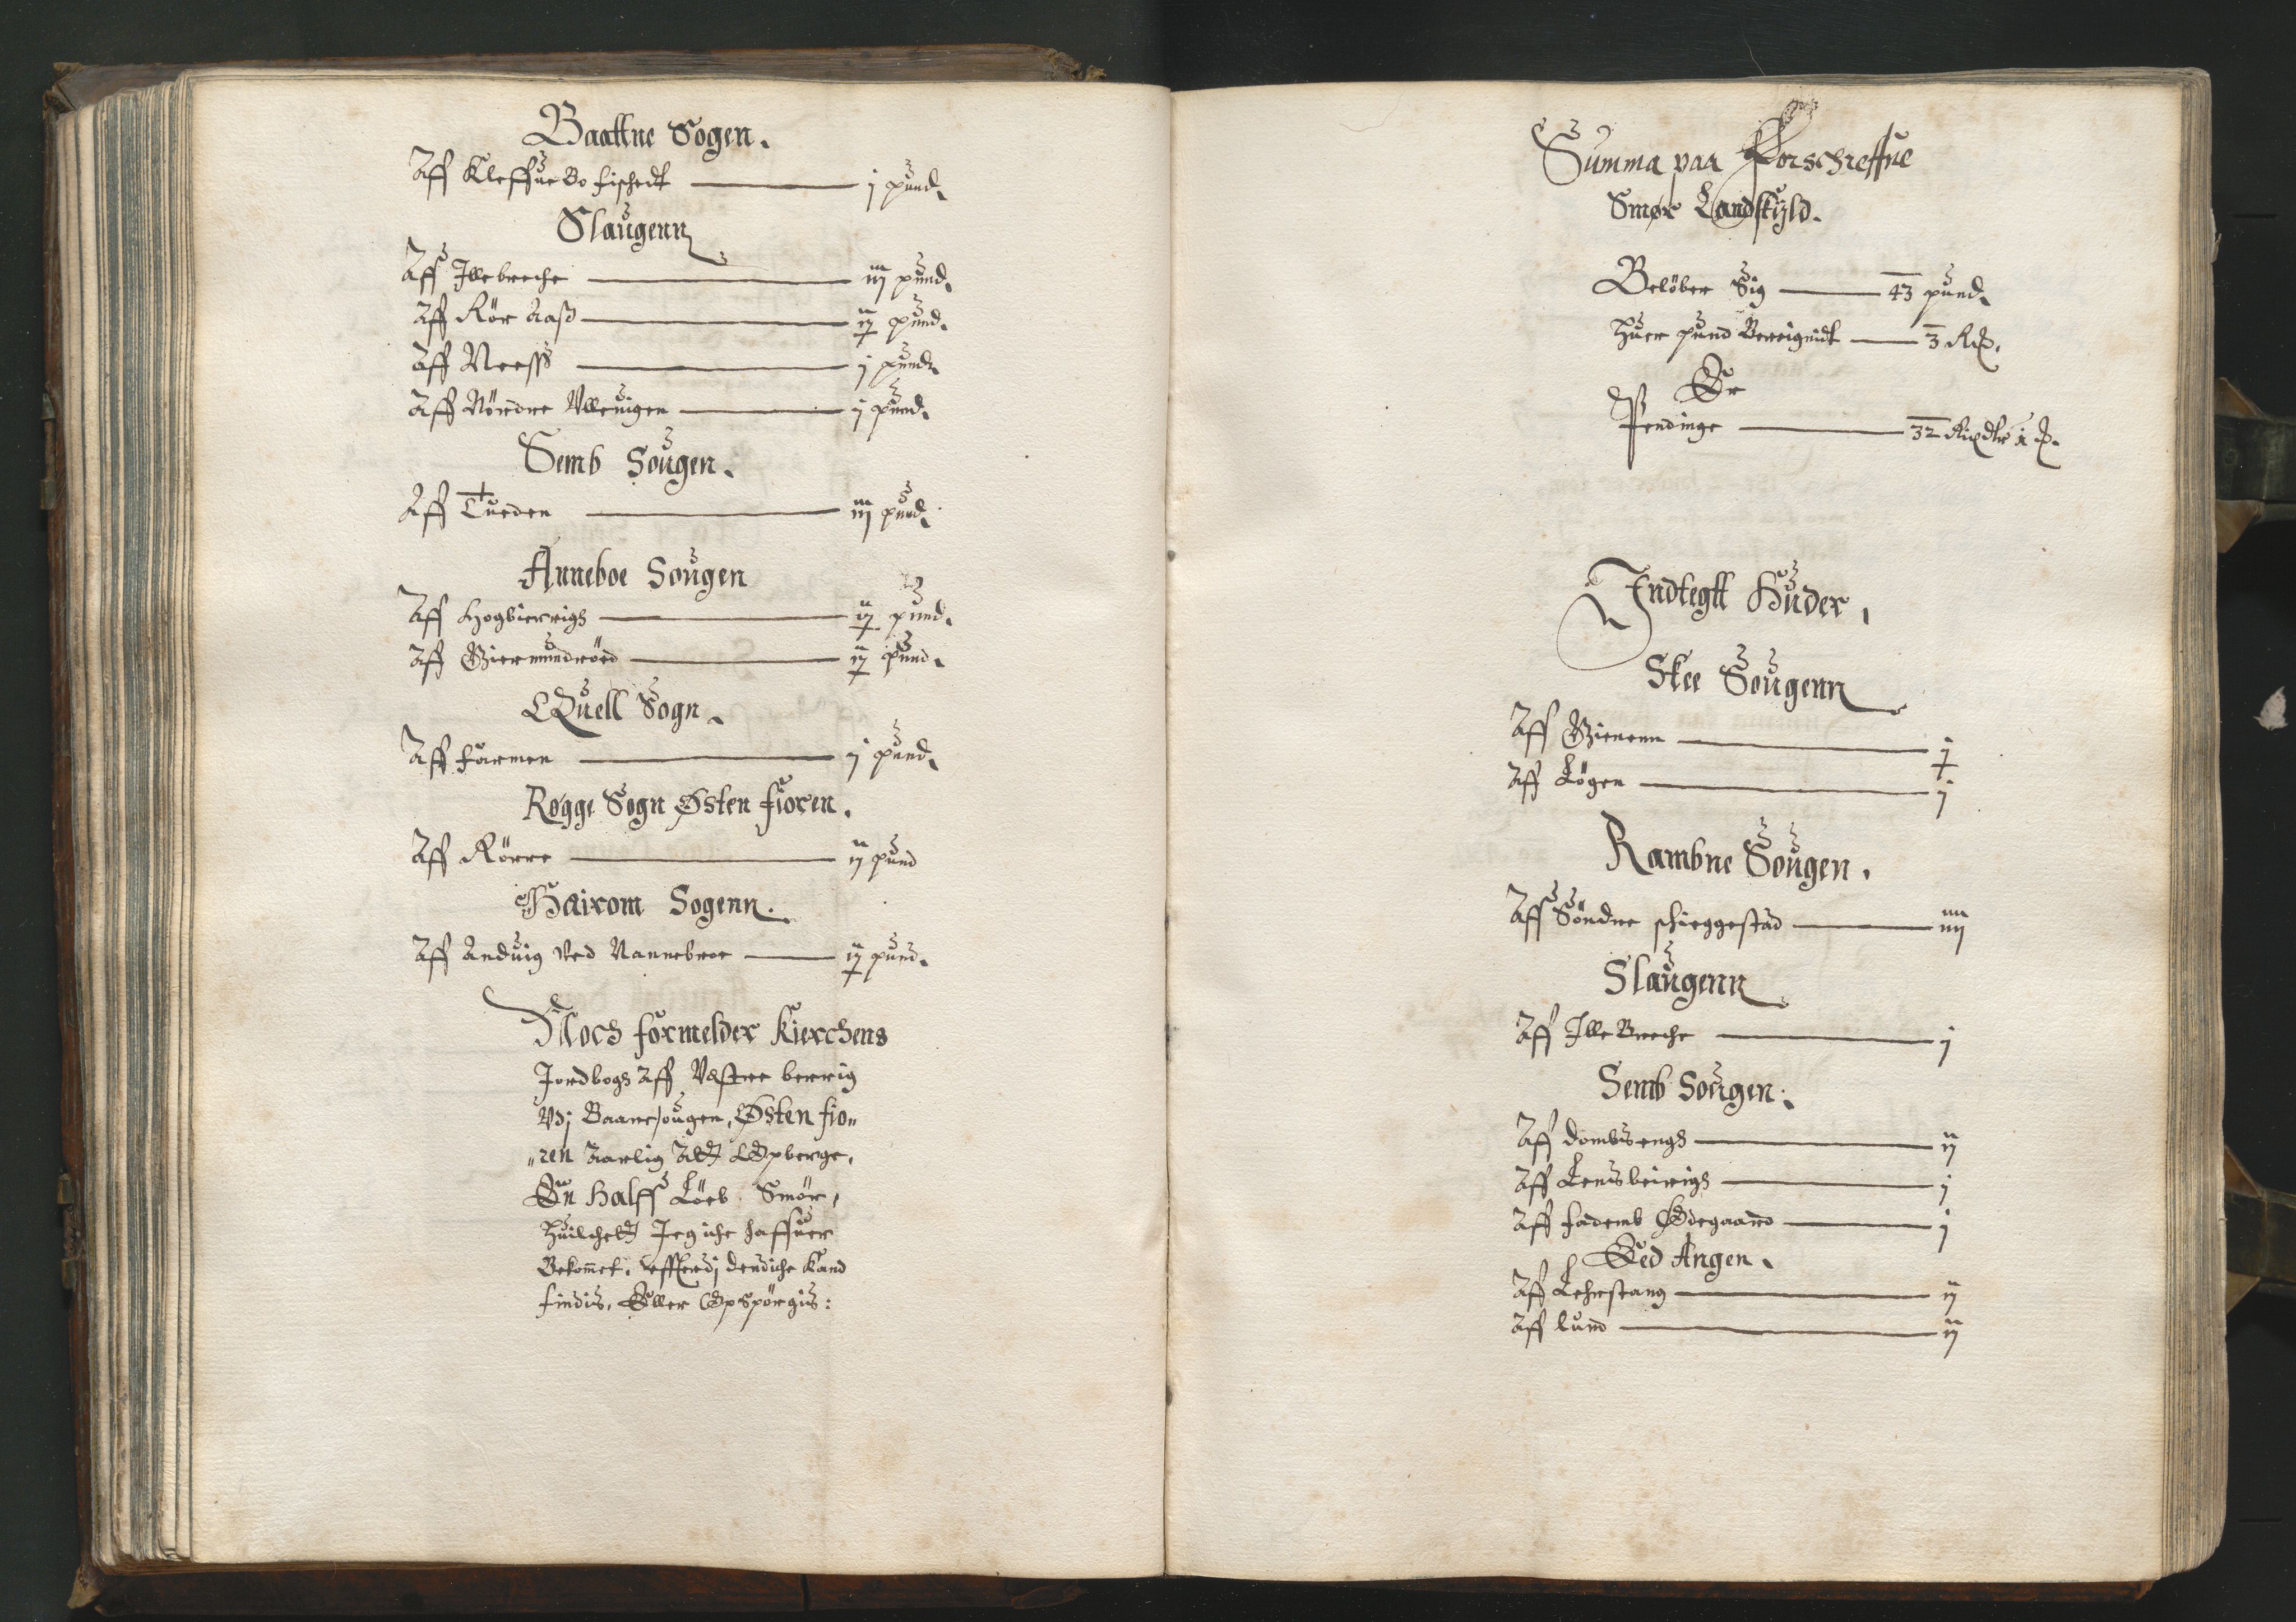 Baattne Sogen.
Aff Kleffue Bo fischedt — j pund.
Slaugenn
Aff Illebreche — iij pund.
Aff Rör Aaß — ij pund.
Aff Neess — j pund.
Aff Nördre Ulleuigen — j pund.
Semb Sougen.
Aff Tueden — iij pund.
Anneboe Sougen
Aff Hogbierrigh — ij pund.
Aff Giermundröed — ij pund.
Quell Sogn.
Aff Farmen — j pund.
Rögge Sogn Østen fioren.
Aff Rörre — ij pund
Hairom Sogenn.
Aff Anduig Ved Nannebroe — ij pund.
Noch formelder Kierchens
Jordbogh Aff Vestre berrig
Vdj Baanesougen, Østen fio„
„ren Aarlig Att Opberge,
En Halff Löeb Smör,
Huilchett Jeg iche haffuer
Bekomet, efftterdj dend iche Kand
findis, Eller Opspörgis:
Summa paa Forschreffne
Smör Landskyld.
Belöber Sig — 43 pund.
Huer pund Bereignidt — 3 R
Er
Pendinge — 32 Rixdlr 1 R.
Indtegtt Huder,
Skee Sougenn
Aff Gienenn — j
Aff Løgen — j
Rambne Sougen.
Aff Söndre schieggestad — iiij
Slaugenn
Aff Ille Breche — j
Semb Sougen.
Aff Dombsengh — ij
Aff Lensbeirigh — j
Aff Fademb Ødegaard — j
Ved Angen.
Aff Lehrstang — ij
Aff Lund — ij